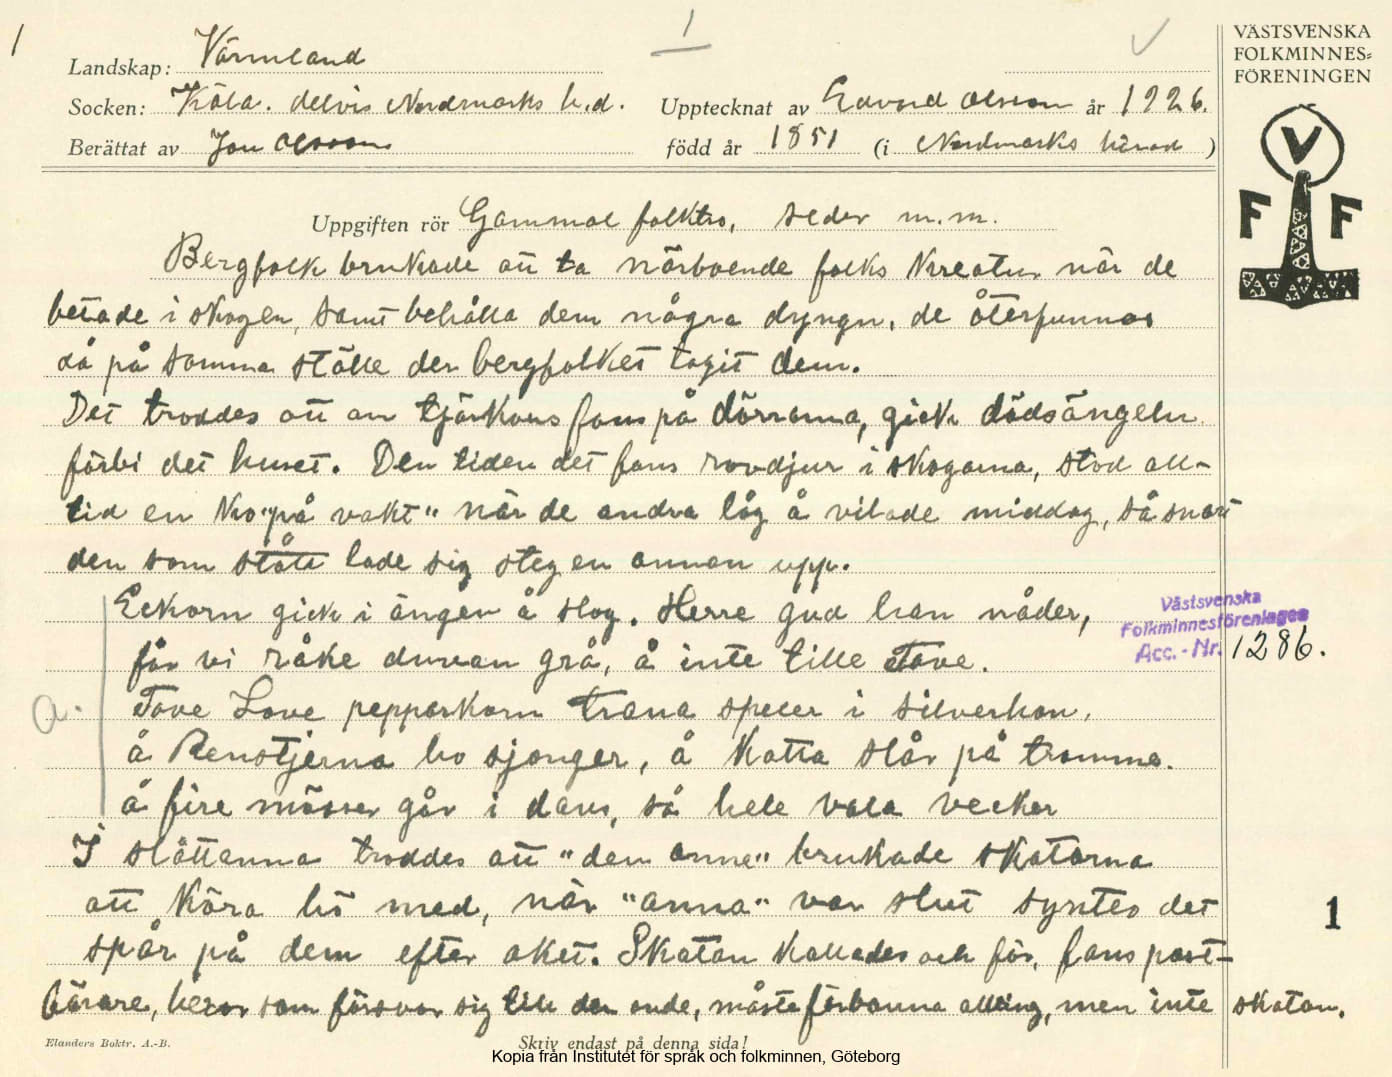 1
1
VÄSTSVENSKA
FOLKMINNES=
FÖRENINGEN
V
F F
Landskap: Värmland
Socken: Köla. delvis Nordmarks h.d. Upptecknat av Edvard Olsson år 1926.
Berättat av Jon Olsson född år 1851 (i Nordmarks härad )
Uppgiften rör Gammal folktro, seder m.m.
Bergfolk brukade att ta närboende folks kreatur när de
betade i skogen, samt behålla dem några dyngn, de återfunnos
då på samma ställe der bergfolket tagit dem.
Det troddes att om tjärkors fans på dörrarna, gick dödsängeln
förbi det huset. Den tiden det fans rovdjur i skogarna, stod all-
tid en ko "på vakt" när de andra låg å vilade middag, så snart
den som stått lade sig steg en annan upp.
a.
Eckorn gick i ängen å slog. Herre gud han nåder,
får vi råke duvan grå, å inte lille Tove.
Tove Love pepparkorn trana speler i silverhon,
å Renstjerna ho sjonger, å Katta slår på tromma.
å fire mässer går i dans, så hele vala vecker
I slåttanna troddes att "den onne" brukade skatorna
att köra hö med, när "anna" var slut syntes det
spår på dem efter oket. Skatan kallades och för, fans post-
bärare, hexor som försvor sig till den onde, måste förbanna allting, men inte skatan.
Västsvenska
Folkminnesföreningen
Acc.-Nr. 1286.
1
Elanders Boktr. A.-B.
Skriv endast på denna sida!
Kopia från Institutet för språk och folkminnen, Göteborg